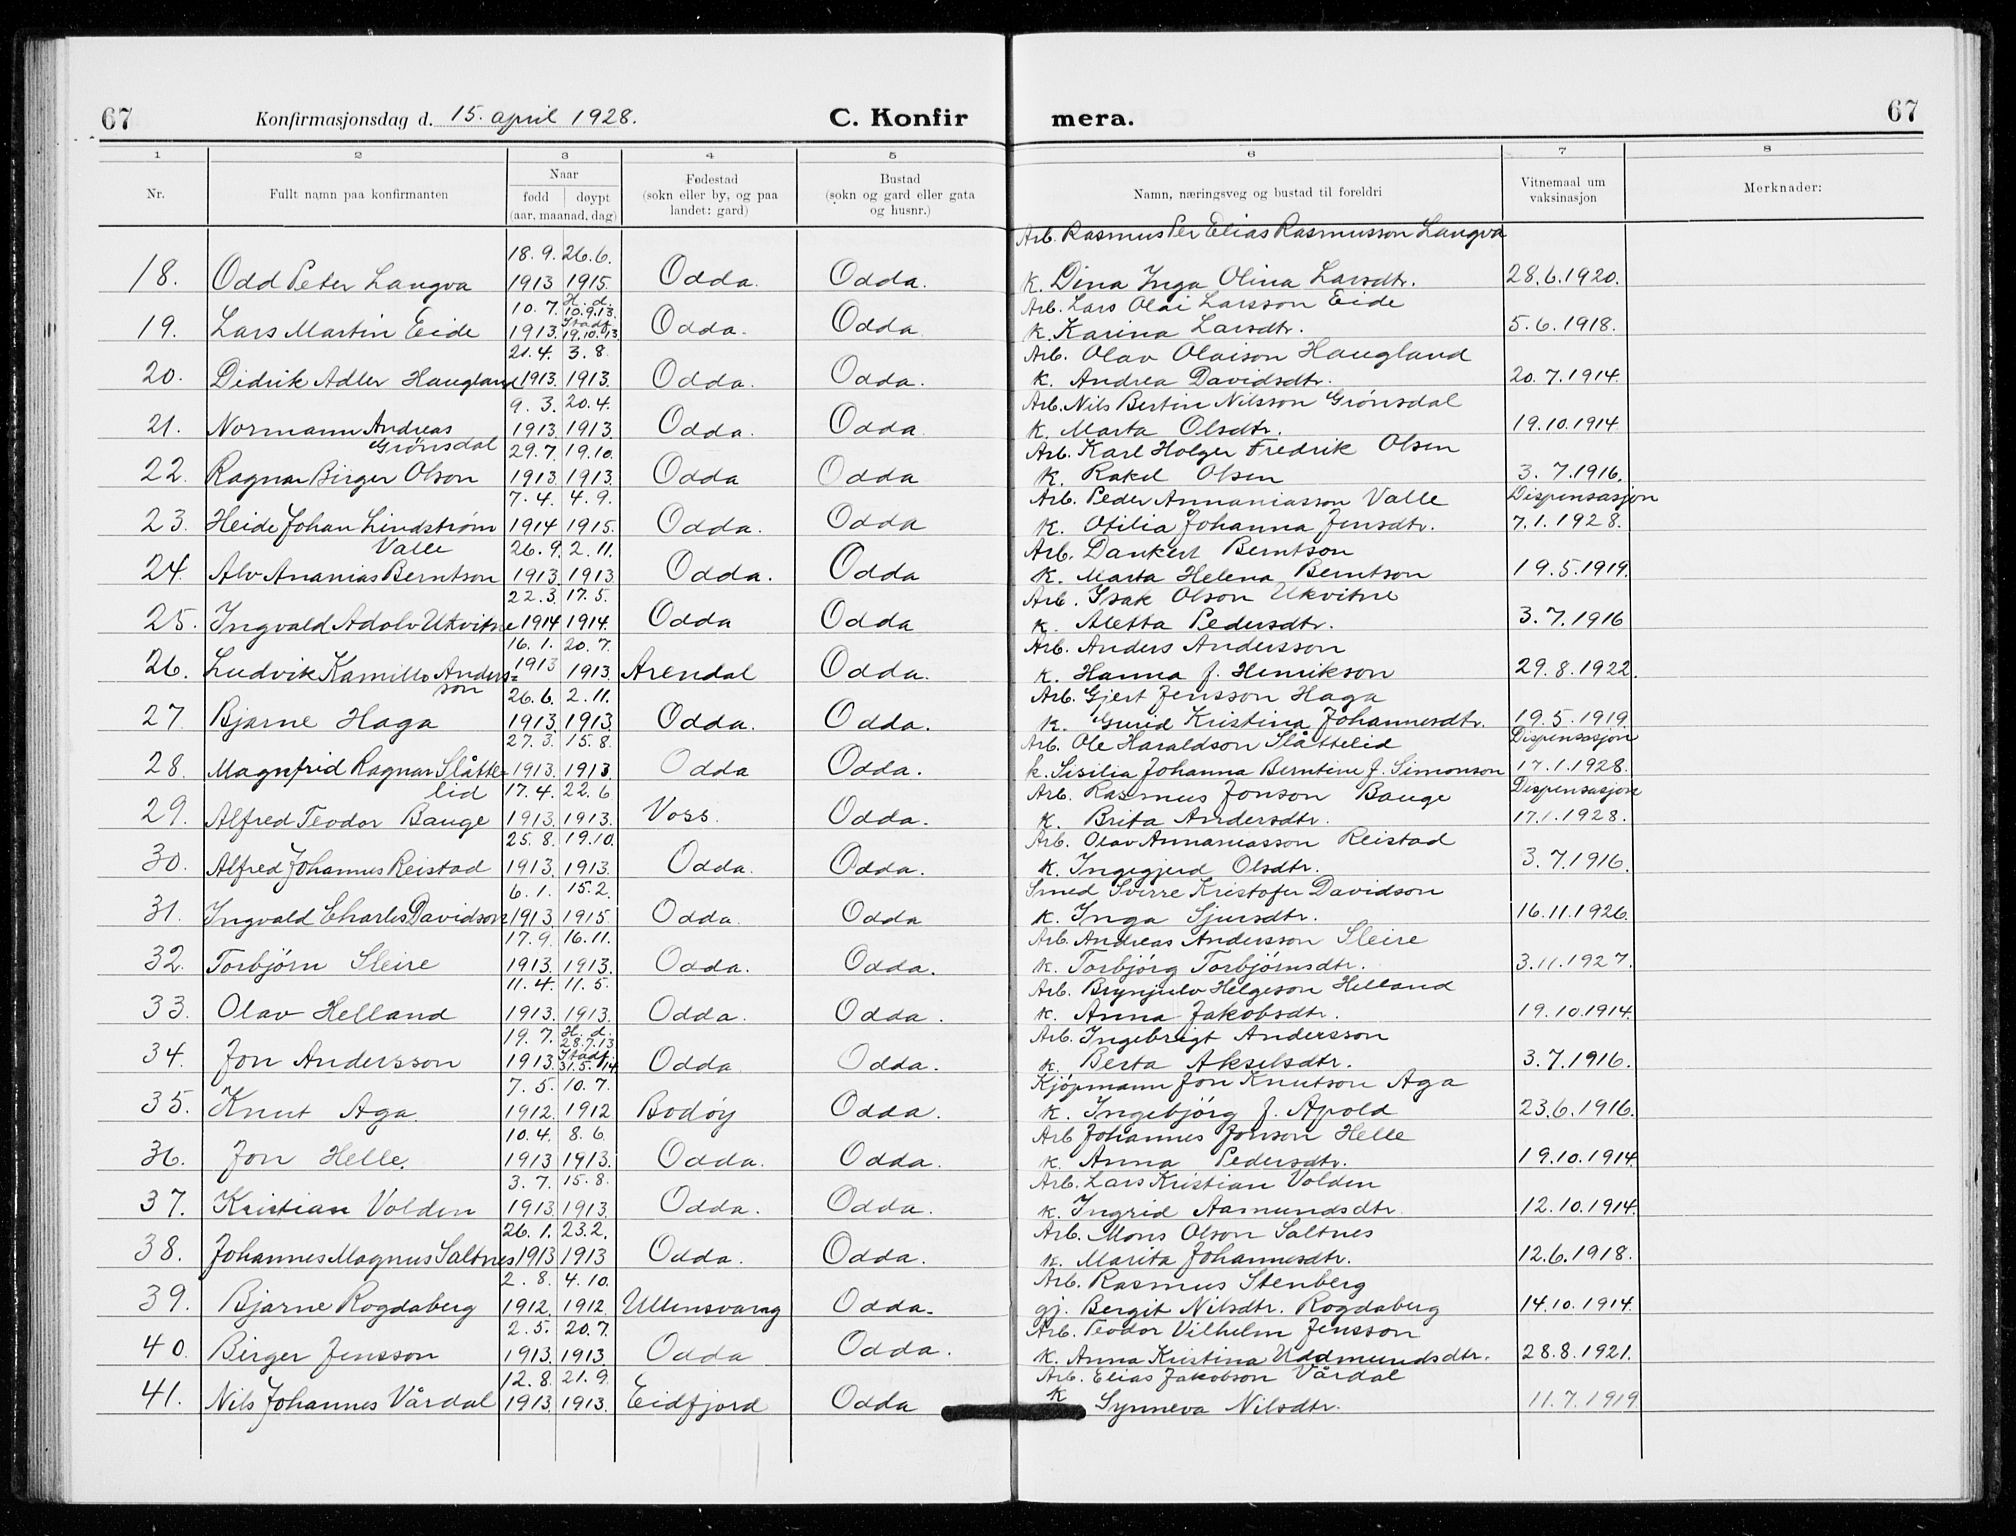 67 Konfirmasjonsdag d. 15. april 1928. C. Konfir mera. 67
1 2 3 4 5 6 7 8
Nr. Fullt namn paa konfirmanten Naar Fødestad Bustad Namn, næringsveg og bustad til foreldri Vitnemaal um Merknader:
fødd døypt (sokn eller by, og paa (sokn og gard eller gata vaksinasjon
(aar, maanad, dag) landet: gard) og husnr.)
18. 9. 26.6. Arb. Rasmus Per Elias Rasmusson Langva
18. Odd Peter Langva 1913 1915. Odda. Odda. K. Dina Inga Olina Larsdtr. 28.6.1920.
10. 7. H. d. 10.9.13. Arb. Lars Olai Larsson Eide
19. Lars Martin Eide 1913. Stadf. 19.10.13 Odda. Odda K. Karina Larsdtr. 5.6.1918.
21.4. 3.8. Arb. Olav Olaison Haugland
20. Didrik Adler Haugland 1913. 1913. Odda. Odda. K. Andrea Davidsdtr. 20.7.1914.
9. 3. 20.4. Arb. Nils Bertin Nilsson Grönsdal
21. Normann Andreas 1913 1913. Odda. Odda. K. Marta Olsdtr. 19.10.1914
Grönsdal 29.7. 19.10. Arb. Karl Holger Fredrik Olsen
22. Ragnar Birger Olson 1913. 1913. Odda Odda K. Rakel Olsen 3. 7.1916.
7. 4. 4. 9. Arb. Peder Annaniasson Valle Dispensasjon
23. Heide Johan Lindström 1914 1915. Odda. Odda K. Otilia Johanna Jensdtr. 7.1.1928.
Valle 26.9. 2.11. Arb. Dankert Berntson
24. Alv Ananias Berntson 1913. 1913 Odda. Odda K. Marta Helena Berntson 19.5.1919.
22.3. 17.5. Arb. Isak Olson Utkvitne
25. Ingvald Adolv Utkvitne 1914 1914. Odda Odda K. Aletta Pedersdtr. 3.7.1916
16.1. 20.7. Arb. Anders Andersson
26. Ludvik Kamillo Anders= 1913 1913. Arendal Odda. K. Hanna J. Henrikson 29.8.1922.
son 26.6. 2.11. Arb. Gjert Jensson Haga
27. Bjarne Haga 1913. 1913. Odda. Odda. K. Gurid Kristina Johannesdtr. 19.5.1919
27.3. 15.8. Arb. Ole Haraldson Slåttelid Dispensasjon
28. Magnfrid Ragnar Slåtte= 1913. 1913. Odda Odda. K. Sisilia Johanna Berntine J. Simonson 17.1.1928.
lid 17.4. 22.6 Arb. Rasmus Jonson Bauge Dispensasjon
29. Alfred Teodor Bauge 1913. 1913. Voss. Odda. K. Brita Andersdtr. 17.1.1928.
25.8. 19.10. Arb. Olav Annaniasson Reistad
30. Alfred Johannes Reistad 1913. 1913. Odda. Odda. K. Ingegjerd Olsdtr. 3.7.1916.
6.1. 15.2. Smed Sverre Kristofer Davidson
31. Ingvald Charles Davidson 1913. 1915. Odda. Odda K. Inga Sjursdtr. 16.11.1926.
17.9. 16.11. Arb. Andreas Andersson Sleire
32. Torbjörn Sleire 1913. 1913. Odda. Odda. K. Torbjörg Torbjörnsdtr. 3.11.1927.
11.4. 11.5. Arb. Brynjulv Helgeson Helland
33. Olav Helland 1913. 1913. Odda. Odda. K. Anna Jakobsdtr. 19.10.1914.
19.7. H. d. 28.7.13 Arb. Ingebrigt Andersson
34. Jon Andersson 1913. Stadf. 31.5.14 Odda Odda. K. Berta Akselsdtr. 3.7.1916.
7.5. 10.7. Kjöpmann Jon Knutson Aga
35. Knut Aga. 1912. 1912 Bodöy Odda. K. Ingebjörg J. Apold 23.6.1916.
10.4. 8.6. Arb Johannes Jonson Helle
36. Jon Helle. 1913 1913. Odda. Odda. K. Anna Pedersdtr. 19.10.1914
3. 7. 15.8. Arb. Lars Kristian Volden
37. Kristian Volden 1913. 1913. Odda. Odda. K. Ingrid Aamundsdtr. 12.10.1914.
26.1. 23.2. Arb. Mons Olson Saltnes
38. Johannes Magnus Saltnes 1913 1913 Odda. Odda. K. Marita Johannesdtr. 12.6.1918.
2. 8. 4.10. Arb. Rasmus Stenberg
39. Bjarne Rogdaberg 1912. 1912. Ullensvang Odda. gj. Bergit Nilsdtr. Rogdaberg 14.10.1914.
2.5. 20.7. Arb. Teodor Vilhelm Jensson
40. Birger Jensson 1913. 1913. Odda Odda. K. Anna Kristina Uddmundsdtr. 28.8.1921.
12.8. 21.9. Arb. Elias Jakobson Vårdal
41. Nils Johannes Vårdal 1913. 1913. Eidfjord Odda K Synneva Nilsdtr. 11.7.1919.